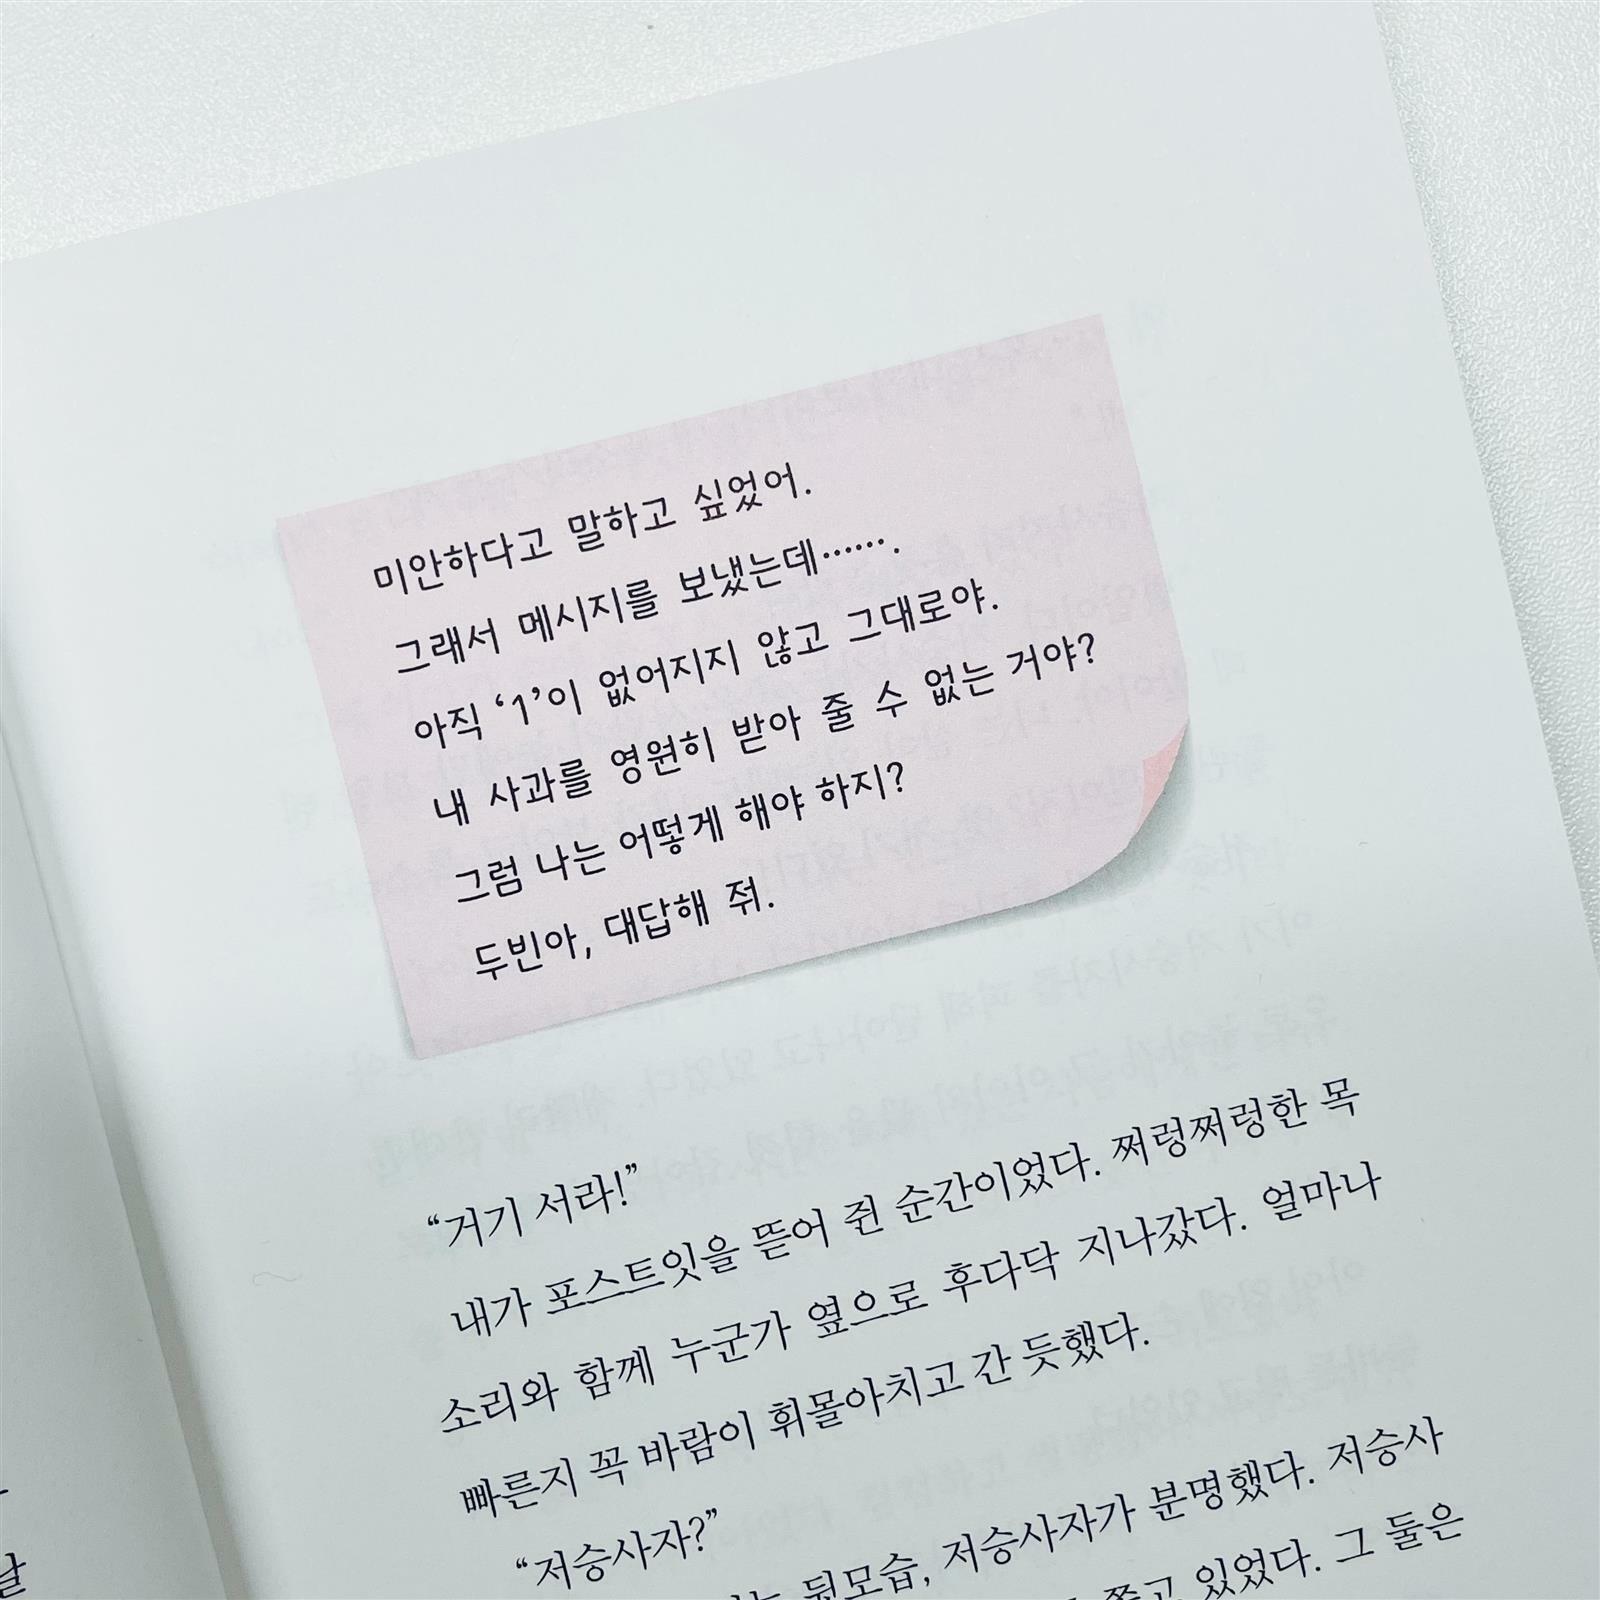 미안하다고 말하고 싶었어.
그래서 메시지를 보냈는데…….
아직 ‘1’이 없어지지 않고 그대로야.
내 사과를 영원히 받아 줄 수 없는 거야?
그럼 나는 어떻게 해야 하지?
두빈아, 대답해 줘.
“거기 서라!”
내가 포스트잇을 뜯어 쥔 순간이었다. 쩌렁쩌렁한 목
소리와 함께 누군가 옆으로 후다닥 지나갔다. 얼마나
빠른지 꼭 바람이 휘몰아치고 간 듯했다.
“저승사자?”
뒷모습, 저승사자가 분명했다. 저승사
쫓고 있었다. 그 둘은
날